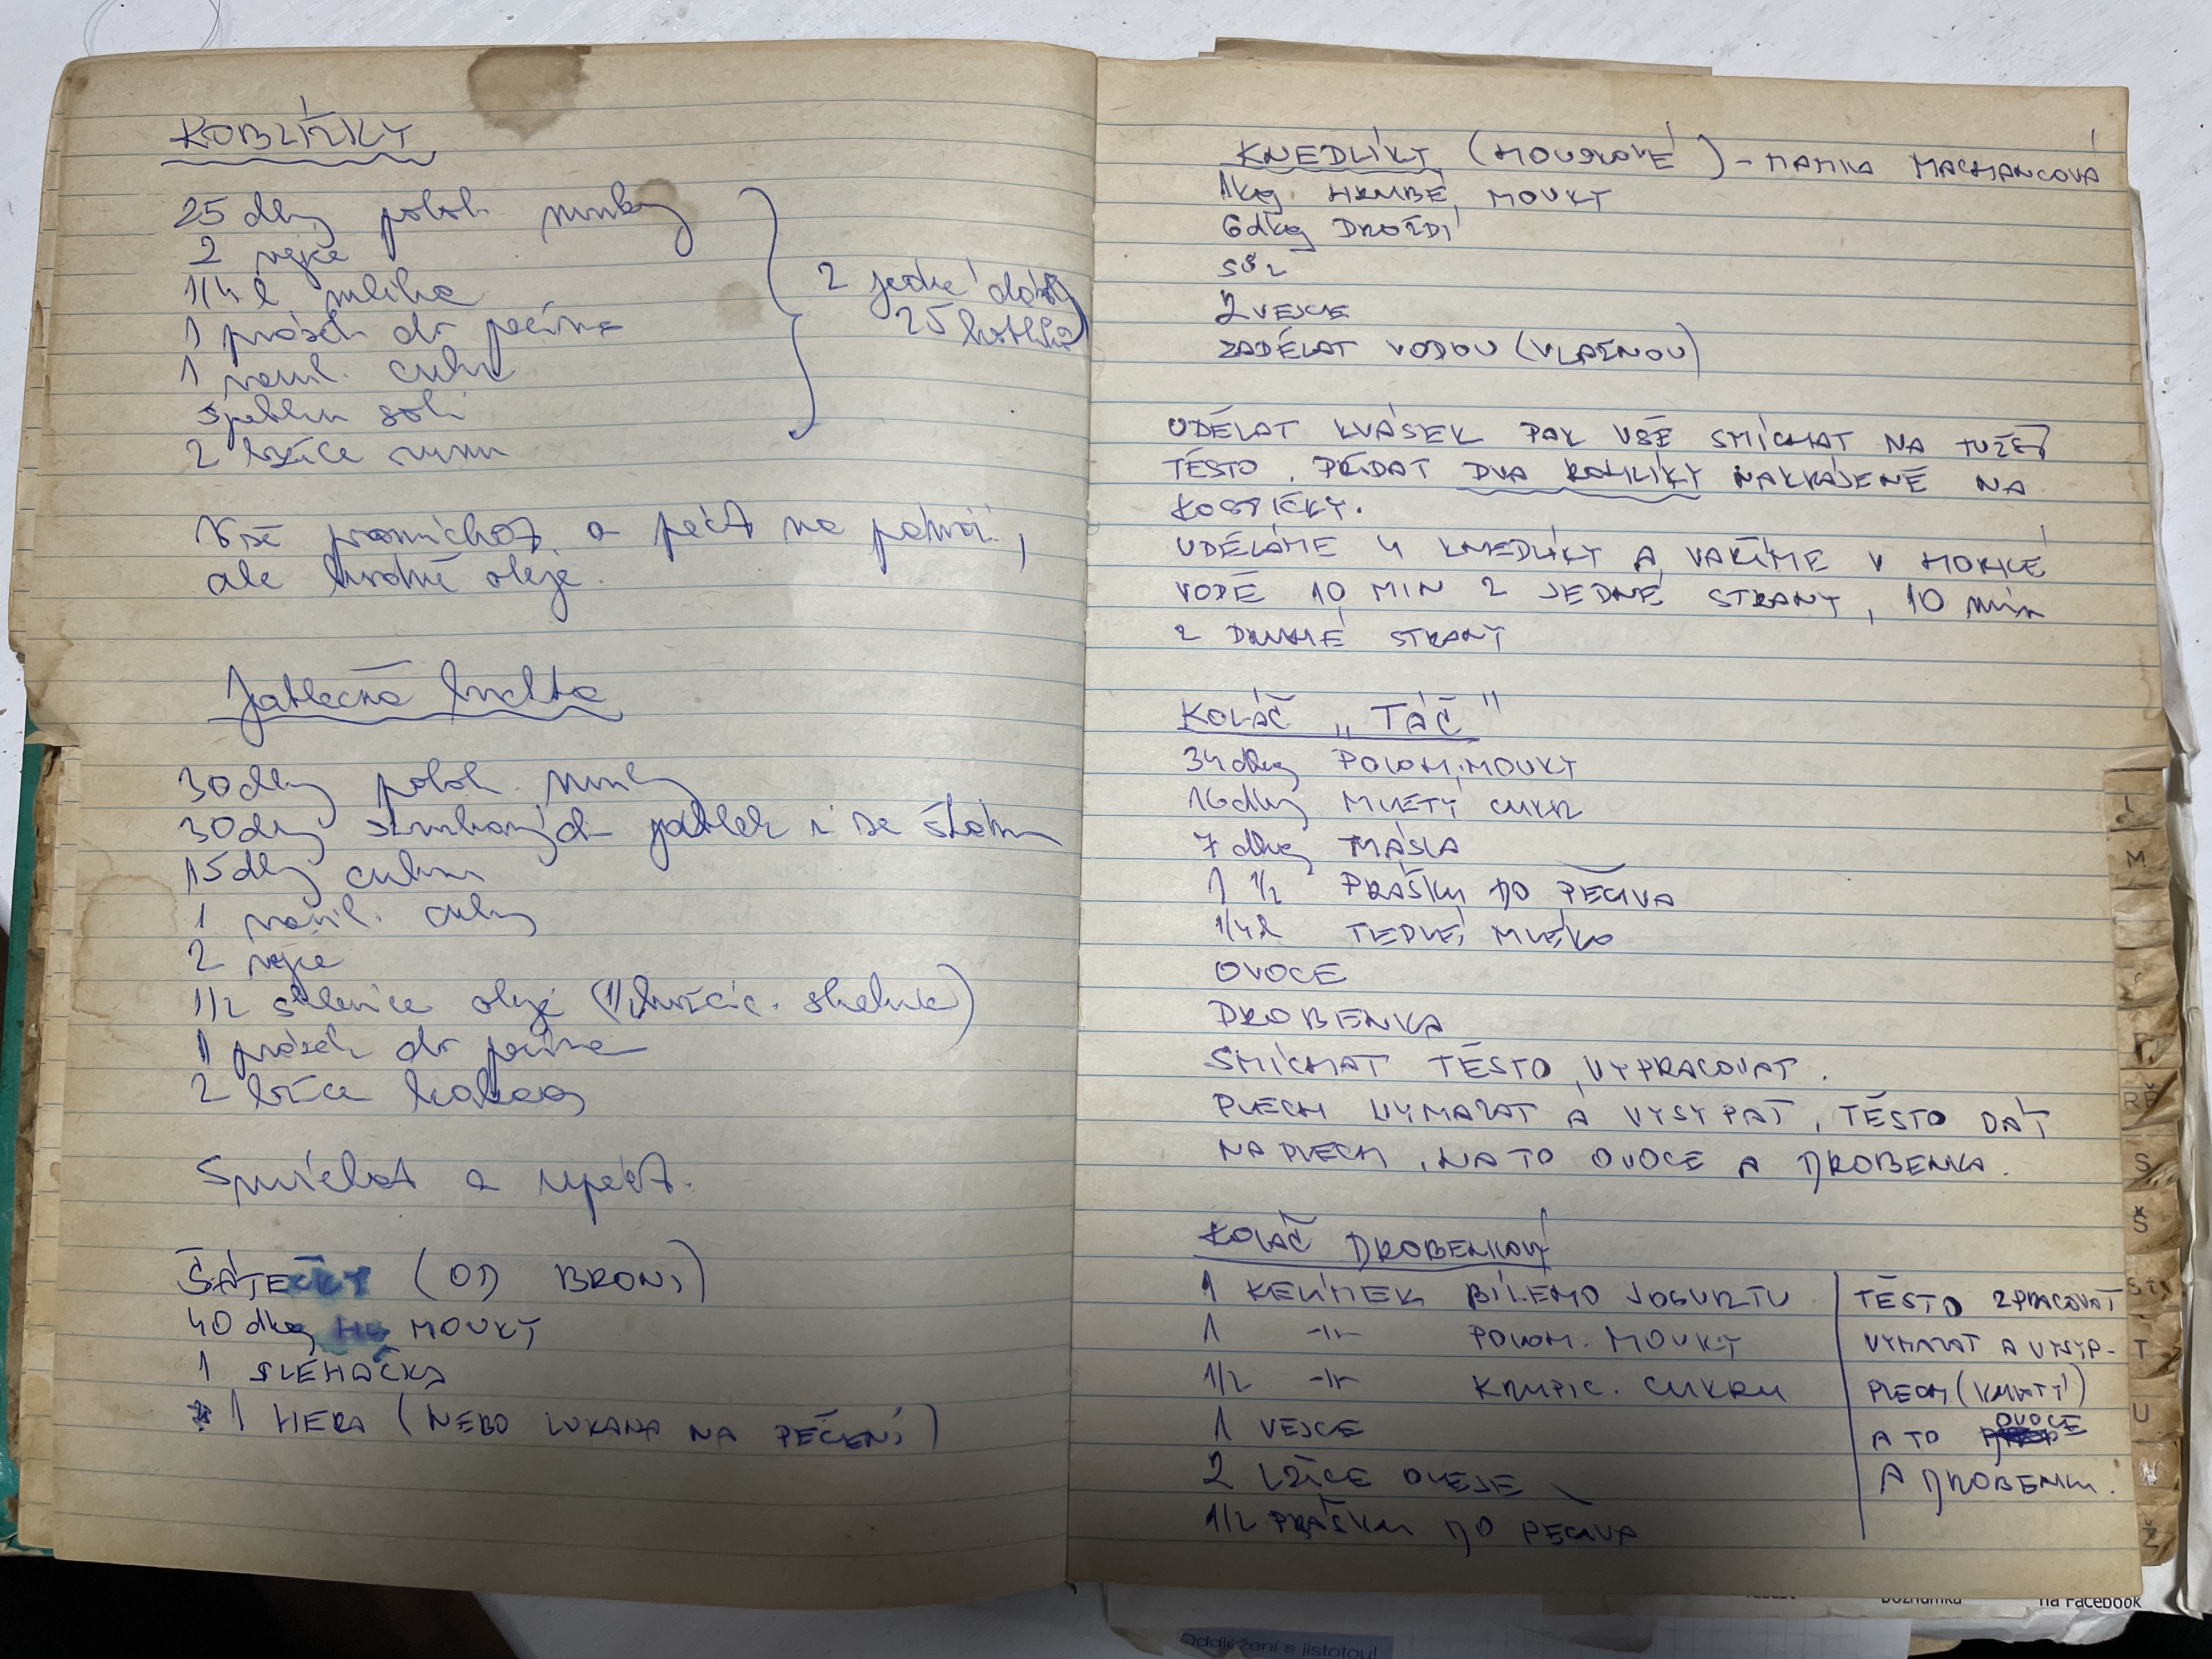 KOBLÍŽKY
25 dkg poloh. mouky
2 vejce
1/4 l mléka
1 prášek do peciva
1 vanil. cukr
špetku soli
2 lžíce rumu
2 jedné dávky
25 koblížků
Vše promíchat a péct na pánvi
ale hodně oleje.
Jablečná buchta
30 dkg poloh. mouky
30 dkg strouhaných jablek i se šťávou
15 dkg cukru
1 vanil. cukr
2 vejce
1/2 sklenice oleje (hořčic. sklenice)
1 prášek do peciva
2 lžíce kakaa
Smíchat a upéct.
ŠÁTEČKY (OD BRONI)
40 dkg MOUKY
1 ŠLEHAČKA
1 HERA (NEBO LUKANA NA PEČENÍ)
KNEDLÍKY (HOUSKOVÉ) - MAMKA MACHANCOVA
1kg HRUBÉ MOUKY
6dkg DROŽDÍ
SŮL
2 VEJCE
ZADĚLAT VODOU (VLAŽNOU)
UDĚLAT KVÁSEK PAK VŠE SMÍCHAT NA TUŽŠÍ
TĚSTO. PŘIDAT DVA ROHLÍKY NAKRÁJENÉ NA
KOSTIČKY.
UDĚLÁME 4 KNEDLÍKY A VAŘÍME V HORKÉ
VODĚ 10 MIN Z JEDNÉ STRANY, 10 MIN
Z DRUHÉ STRANY
KOLÁČ "TÁČ"
34dkg POLOH. MOUKY
16dkg MLETÝ CUKR
7dkg MÁSLA
1 1/2 PRÁŠKU DO PECIVA
1/4 l TEPLÉ MLÉKO
OVOCE
DROBENKA
SMÍCHAT TĚSTO, VYPRACOVAT.
PLECH VYMAZAT A VYSYPAT, TĚSTO DÁT
NA PLECH, NA TO OVOCE A DROBENKA.
KOLÁČ DROBENKOVÝ
1 KELÍMEK BÍLÉHO JOGURTU
1 -||- POLOH. MOUKY
1/2 -||- KRUPIC. CUKRU
1 VEJCE
2 LŽÍCE OLEJE
1/2 PRÁŠKU DO PECIVA
TĚSTO ZPRACOVAT
VYMAZAT A VYSYP-
PLECH (KULATÝ)
A TO OVOCE
A DROBENKU.
L
M
Ř
S
Š
T
U
Ž
na Facebook